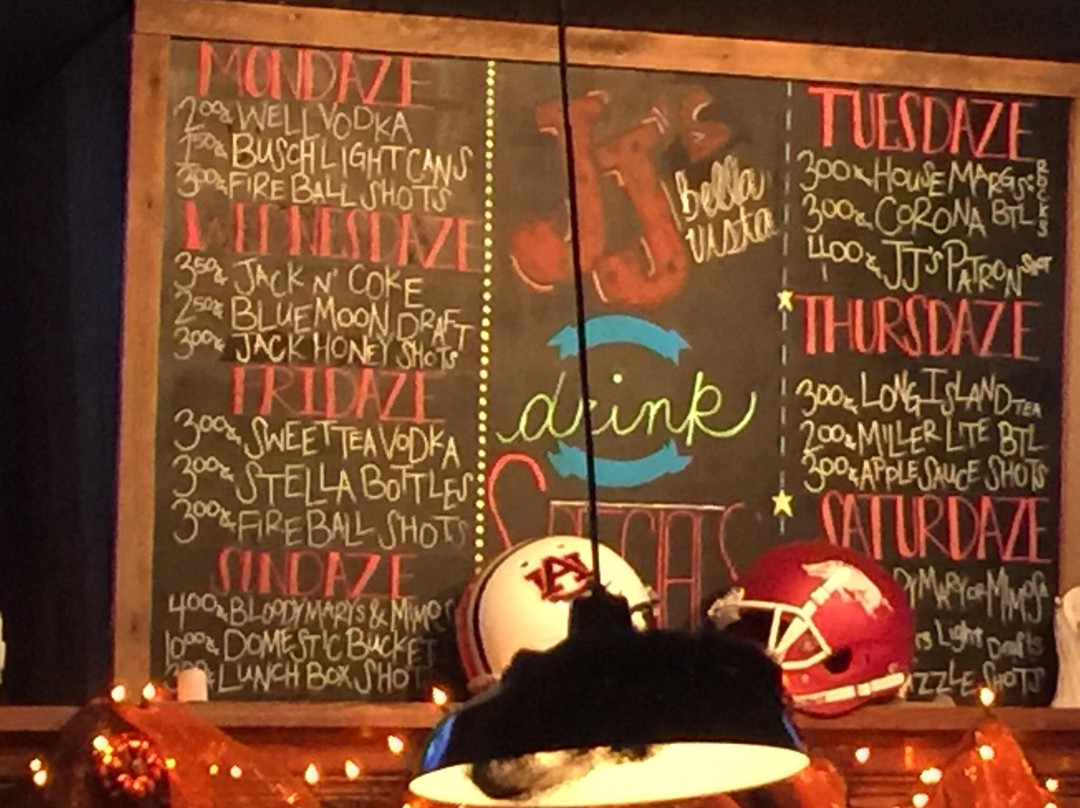 MONDAZE
2⁰⁰ WELL VODKA
1⁵⁰ BUSCH LIGHT CANS
3⁰⁰ FIREBALL SHOTS
WEDNESDAZE
3⁵⁰ JACK N' COKE
2⁵⁰ BLUE MOON DRAFT
3⁰⁰ JACK HONEY SHOTS
FRIDAZE
3⁰⁰ SWEET TEA VODKA
3⁰⁰ STELLA BOTTLES
3⁰⁰ FIREBALL SHOTS
SUNDAZE
4⁰⁰ BLOODY MARYS & MIMOS
10⁰⁰ DOMESTIC BUCKET
LUNCH BOX SHOT
JJ's
bella
vista
drink
SPECIALS
AU
TUESDAZE
3⁰⁰ HOUSE MARGS: ROCKS
3⁰⁰ CORONA BTL
4⁰⁰ JJ'S PATRON SHOT
THURSDAZE
3⁰⁰ LONG ISLAND TEA
2⁰⁰ MILLER LITE BTL
3⁰⁰ APPLE SAUCE SHOTS
SATURDAZE
DY MARY OR MIMOSA
rs Light Drafts
IZZLE SHOTS